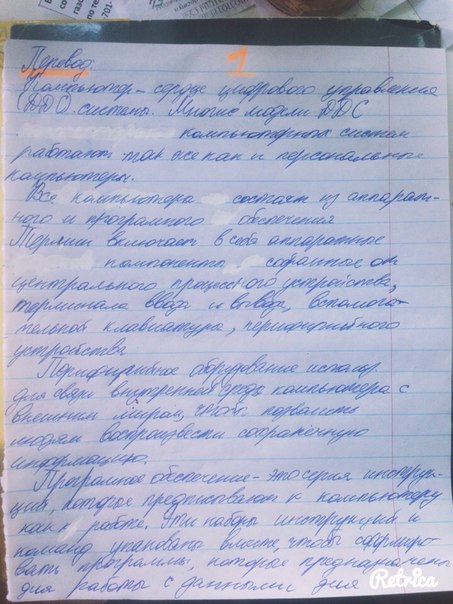 1
Перевод.
Компьютер - сердце цифрового управления
(ДДС) системы. Многие модели ДДС
компьютерных систем
работают так же как и персональные
компьютеры.
Все компьютера состоят из аппарат-
ного и програмного обспечения
Термин включает в себя аппаратное
компоненты
центрального процессного устройства,
терминала ввода и вывода, вспомога-
тельной клавиатуры, периферийного
устройства
Периферийное оборудование использ.
для связи внутренней среды компьютера с
внешним миром, чтобы позволить
людям воспроизвести сохраненную
информацию.
Програмное обспечение - это серия инструк-
ций, которое предписывают к компьютеру
как к работе. Эти наборы инструкций и
команд упакованы вместе, чтобы сформиро-
вать программы, которое предназначены
для работы с данными для
Retrica
701-